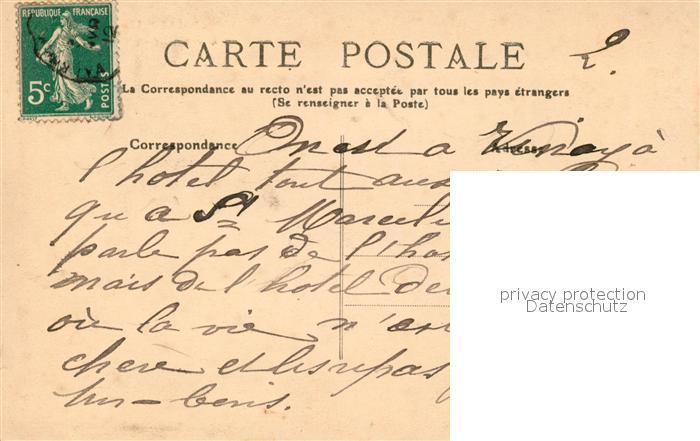 REPUBLIQUE FRANÇAISE
5c
POSTES
CARTE POSTALE
2.
La Correspondance au recto n'est pas acceptée par tous les pays étrangers
(Se renseigner à la Poste)
Correspondance
On est a Vinay à
l'hotel tout aus
qu a St Marceli
parle pas de l'ho
mais de l'hotel de
où la vie n'es
chere et les repas
très-bons.
privacy protection
Datenschutz